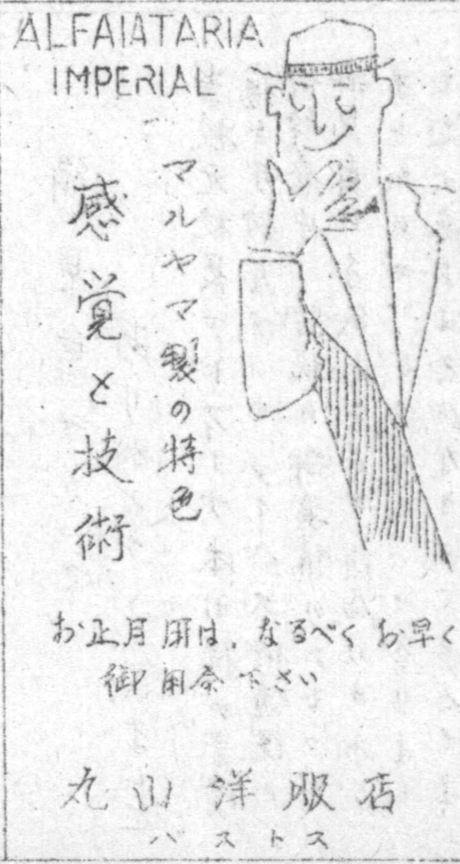 ALFAIATARIA
IMPERIAL
マルヤマ製の特色
感覚と技術
お正月用は、なるべくお早く
御用命下さい
丸山洋服店
バストス